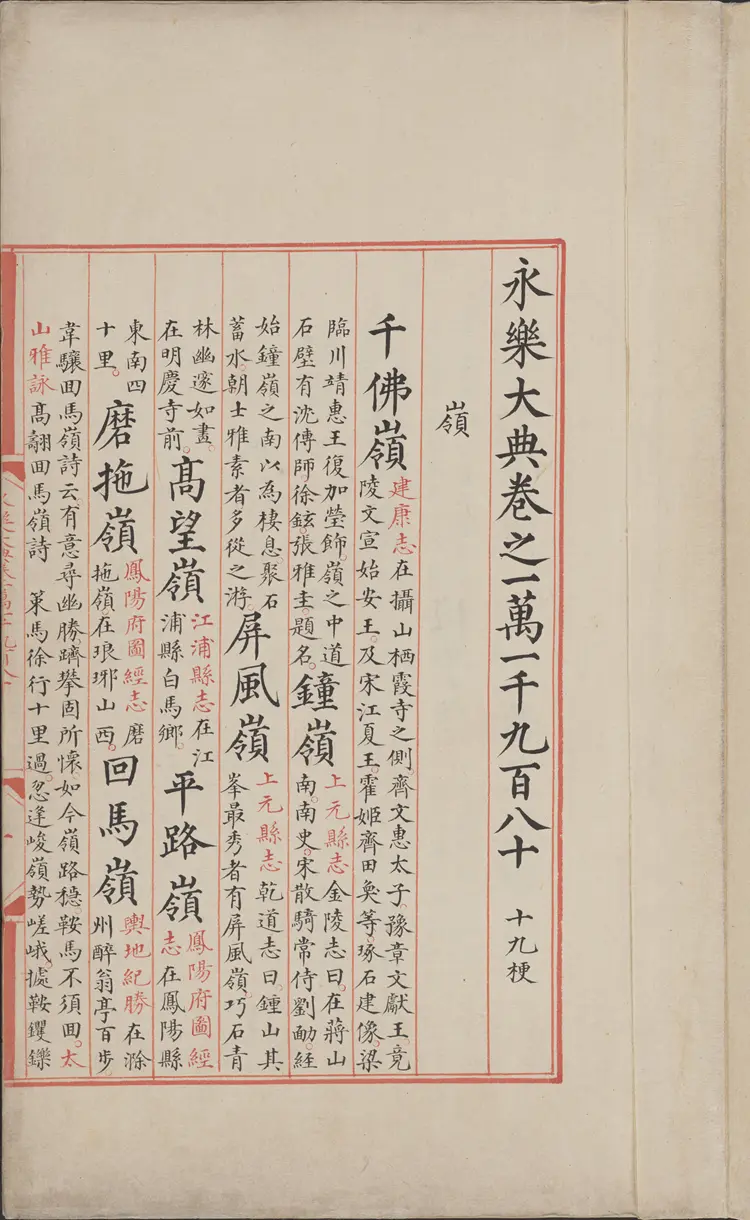 永樂大典卷之一萬一千九百八十 十九梗
嶺
千佛嶺
建康志在攝山栖霞寺之側。齊文惠太子豫章文獻王。竟
陵文宣始安王。及宋江夏王。霍姬齊田奐等。琢石建像。梁
臨川靖惠王復加瑩飾。嶺之中道
石壁有沈傳師。徐鉉。張雅圭。題名。
鐘嶺
上元縣志金陵志曰。在蔣山
南。南史。宋散騎常侍劉勔。經
始鐘嶺之南以為棲息。聚石
蓄水。朝士雅素者多從之游。
屏風嶺
上元縣志乾道志曰。鍾山其
峯最秀者有屏風嶺。巧石青
林幽邃如畫。
在明慶寺前。
高望嶺
江浦縣志在江
浦縣白馬鄉。
平路嶺
鳳陽府圖經
志在鳳陽縣
東南四
十里。
磨拖嶺
鳳陽府圖經志磨
拖嶺。在琅琊山西。
回馬嶺
輿地紀勝在滁
州醉翁亭百步。
韋驤回馬嶺詩云有意尋幽勝。躋攀固所懷。如今嶺路穩。鞍馬不須回。太
山雅詠高翿回馬嶺詩 策馬徐行十里過。忽逢峻嶺勢嵯峨。據鞍钁鑠